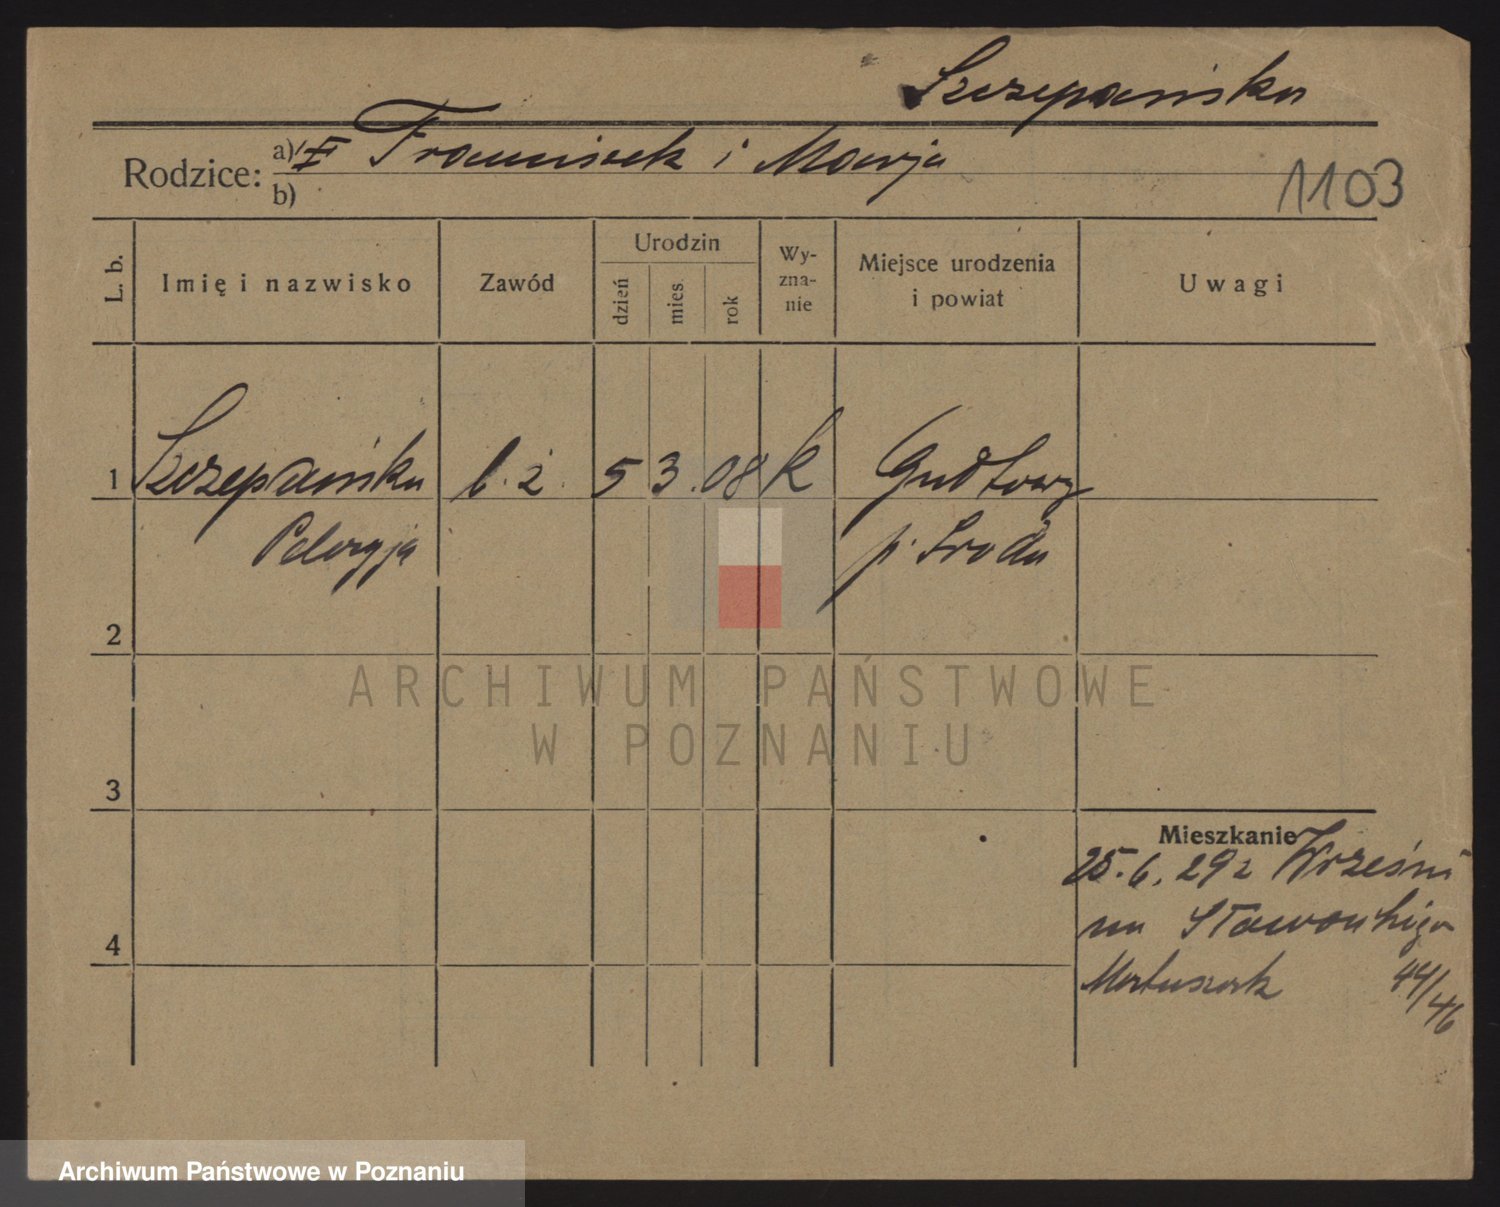 Szczepańska
Rodzice: a) Franciszek i Marja
b)
1103
L. b. Imię i nazwisko Zawód Urodzin dzień mies rok Wy-zna-nie Miejsce urodzenia i powiat Uwagi
1 Szczepańska b. ż. 5 3. 08 k Gudtowy
Pelagja p. Środa
2
3
Mieszkanie
25. 6. 29 z Wrześni
4 na Sławońskiego
44/46
ARCHIWUM PAŃSTWOWE
W POZNANIU
Archiwum Państwowe w Poznaniu